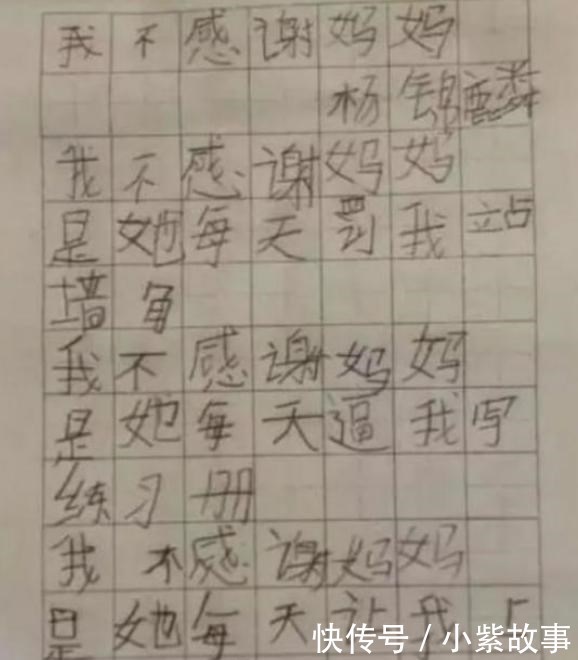 我不感谢妈妈
杨锦麟
我不感谢妈妈
是她每天罚我站
墙角
我不感谢妈妈
是她每天逼我写
练习册
我不感谢妈妈
是她每天让我上
快传号/小紫故事